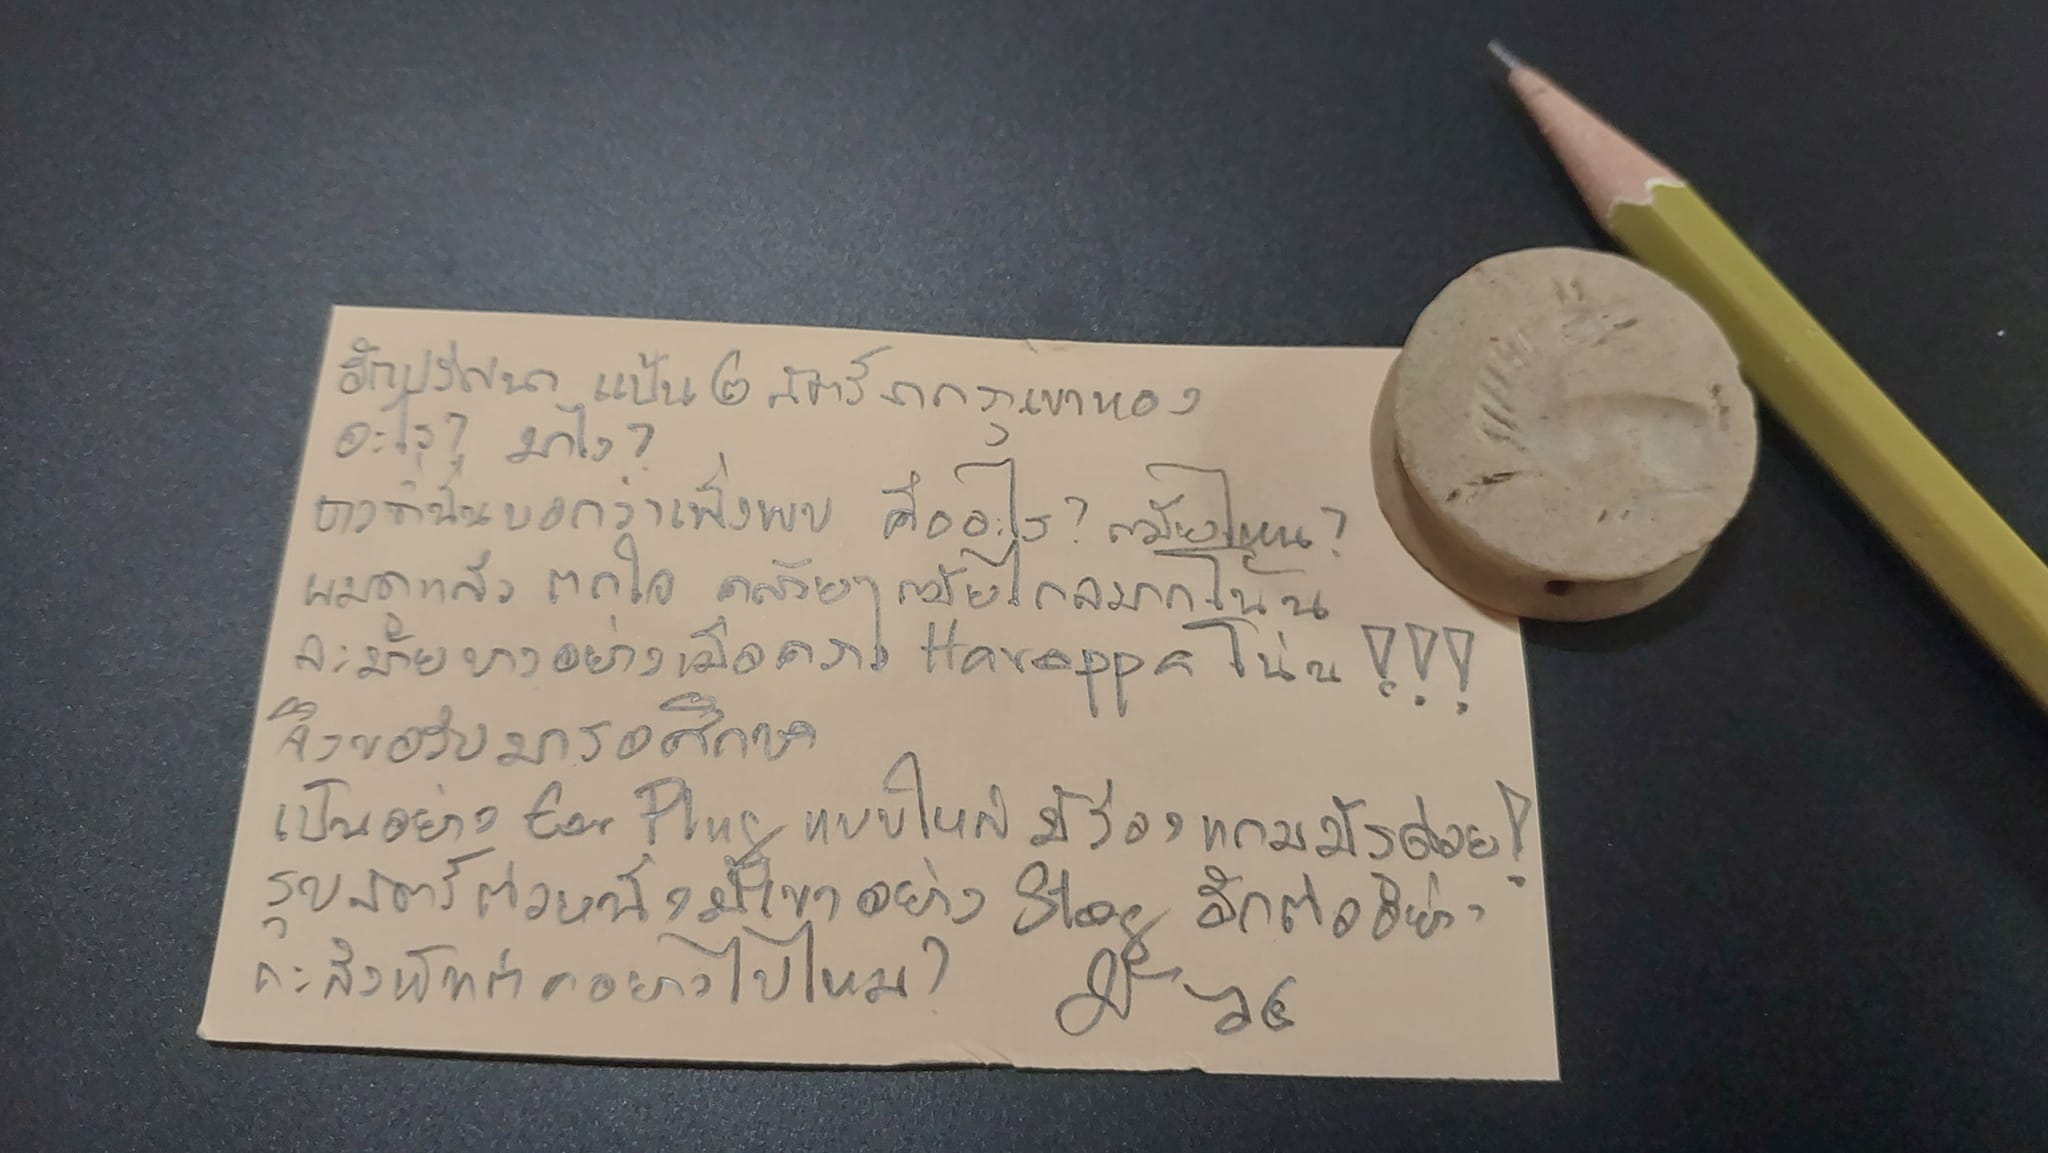 อีกปริศนา แป้น ๒ สัตว์ จากภูเขาทอง
อะไร? มาไง?
ชาวถิ่นบอกว่าเพิ่งพบ คืออะไร? สมัยไหน?
ผมดูแล้ว ตกใจ คล้ายๆ สมัยไกลมากโน้น
ละม้ายบางอย่างเมื่อคราว Harappa โน่น !!!
จึงขอรับมารอศึกษา
เป็นอย่าง Ear Plug แบบใหญ่ มีร่อง แถมมีรูด้วย!
รูปสัตว์ตัวหนึ่งมีเขาอย่าง Stag อีกตัวอย่าง
กะสิงห์ท่าคอยาวไปไหม?